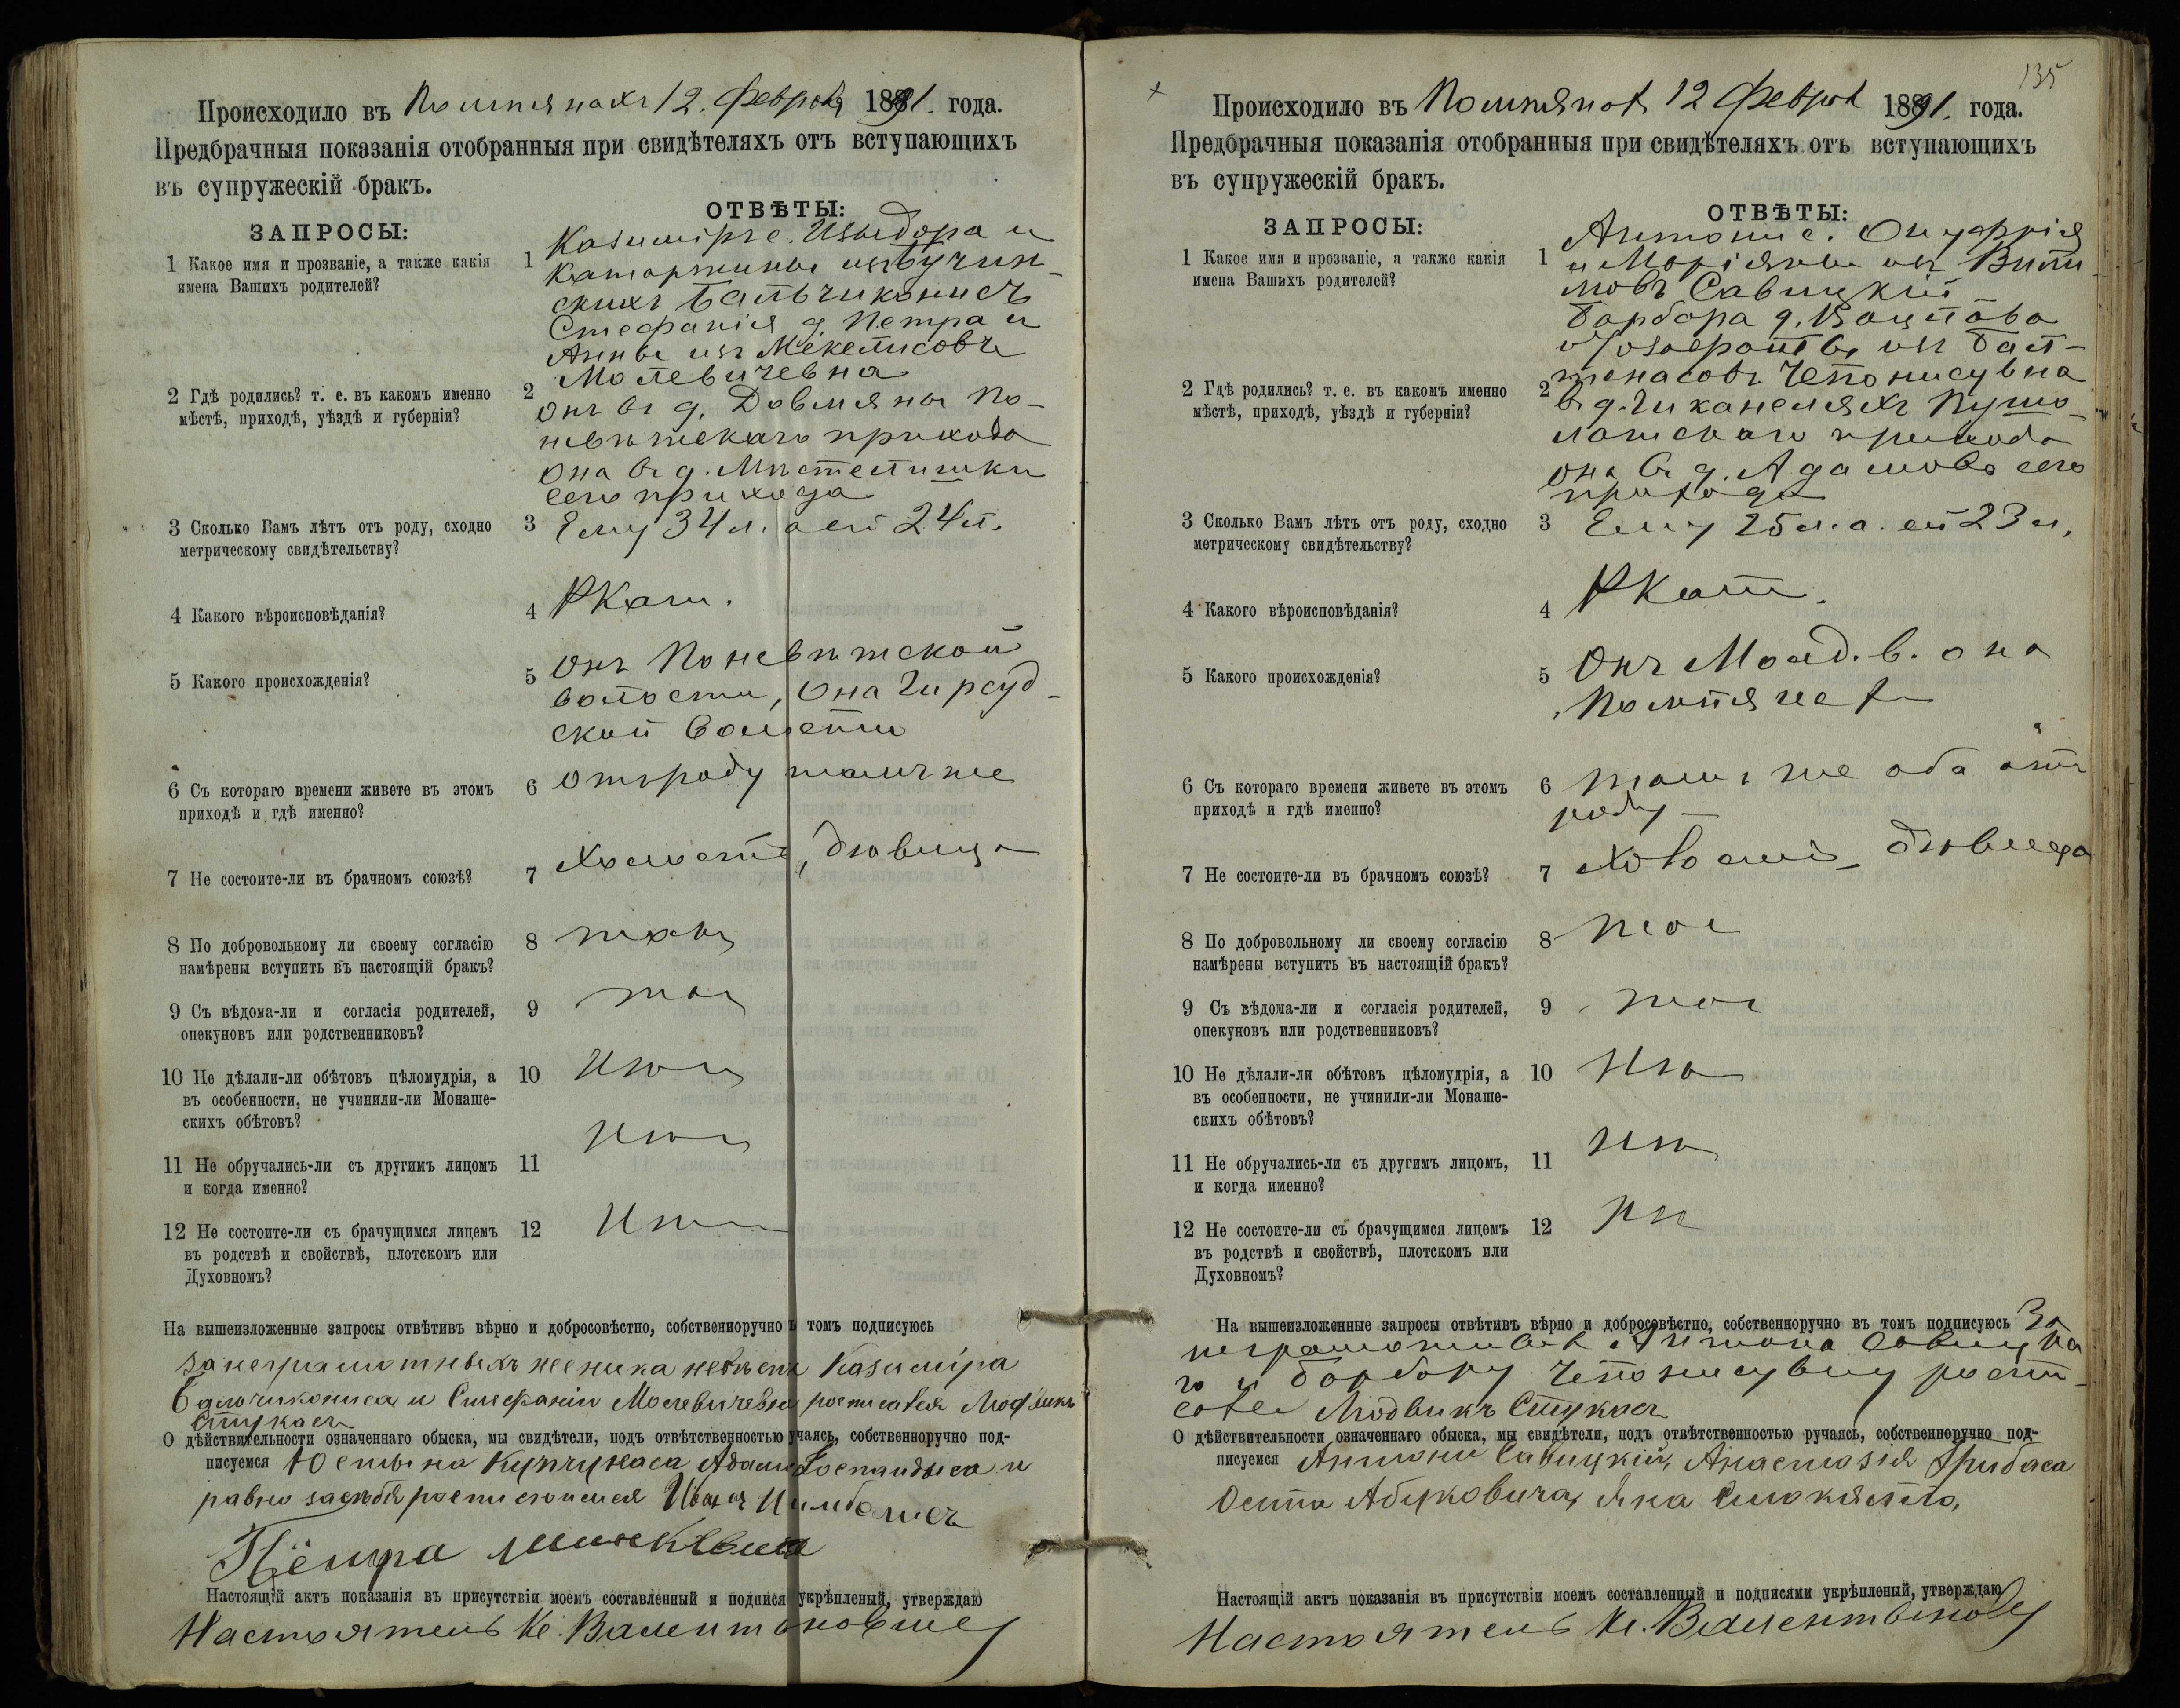 Происходило въ Помпянахъ 12. Февраля 1891. года.
Предбрачныя показанія отобранныя при свидѣтеляхъ отъ вступающихъ
въ супружескій бракъ.
ЗАПРОСЫ:
ОТВѢТЫ:
1 Какое имя и прозваніе, а также какія
имена Вашихъ родителей?
1 Казимиръ с. Изыдора и
Катаржины изъ Бучин-
скихъ Бальчиконисъ
Стефанія д. Петра и
Анны изъ Мекелисовъ
Молевичевна
2 Гдѣ родились? т. е. въ какомъ именно
мѣстѣ, приходѣ, уѣздѣ и губерніи?
2 онъ въ д. Довмяны По-
невѣжскаго прихода
она въ д.
сего прихода
3 Сколько Вамъ лѣтъ отъ роду, сходно
метрическому свидѣтельству?
3 Ему 34 л. а ей 24 л.
4 Какого вѣроисповѣданія?
4 РКат.
5 Какого происхожденія?
5 Онъ Поневѣжской
волости, Она Гирсуд-
ской волости
6 Съ котораго времени живете въ этомъ
приходѣ и гдѣ именно?
6 отъ роду тамъ же
7 Не состоите-ли въ брачномъ союзѣ?
7 Холостъ, дѣвица
8 По добровольному ли своему согласію
намѣрены вступить въ настоящій бракъ?
8 такъ
9 Съ вѣдома-ли и согласія родителей,
опекуновъ или родственниковъ?
9 такъ
10 Не дѣлали-ли обѣтовъ цѣломудрія, а
въ особенности, не учинили-ли Монаше-
скихъ обѣтовъ?
10 Нѣтъ
11 Не обручались-ли съ другимъ лицомъ
и когда именно?
11 Нѣтъ
12 Не состоите-ли съ брачущимся лицемъ
въ родствѣ и свойствѣ, плотскомъ или
Духовномъ?
12 Нѣтъ
На вышеизложенные запросы отвѣтивъ вѣрно и добросовѣстно, собственноручно въ томъ подписуюсь
за неграмотныхъ жениха невѣсты Казимира
Бальчикониса и Стефаніи Молевичевны росписался Людвикъ
Стукасъ
О дѣйствительности означеннаго обыска, мы свидѣтели, подъ отвѣтственностью ручаясь, собственноручно под-
писуемся Юстына Купчунаса Адама и
равно за себя росписался Иванъ
Пётра
Настоящій актъ показанія въ присутствіи моемъ составленный и подписями укрѣпленый, утверждаю
Настоятель Кс.
135
Происходило въ Помпянахъ 12 Февраля 1891. года.
Предбрачныя показанія отобранныя при свидѣтеляхъ отъ вступающихъ
въ супружескій бракъ.
ЗАПРОСЫ:
ОТВѢТЫ:
1 Какое имя и прозваніе, а также какія
имена Вашихъ родителей?
1 Антони с. Онуфрія
и Маріянны изъ
Савицкій
Барбара д.
и Іозефаты изъ Бал-
тенасовъ Чепонисувна
2 Гдѣ родились? т. е. въ какомъ именно
мѣстѣ, приходѣ, уѣздѣ и губерніи?
2 въ д. Чиканеляхъ Пушо-
латскаго прихода
она въ д. Адамово сего
прихода
3 Сколько Вамъ лѣтъ отъ роду, сходно
метрическому свидѣтельству?
3 Ему 25 л. а. ей 23 л.
4 Какого вѣроисповѣданія?
4 РКат.
5 Какого происхожденія?
5 Онъ в. она
Помпянск
6 Съ котораго времени живете въ этомъ
приходѣ и гдѣ именно?
6 тамъ же оба отъ
роду
7 Не состоите-ли въ брачномъ союзѣ?
7 Холостъ дѣвица
8 По добровольному ли своему согласію
намѣрены вступить въ настоящій бракъ?
8 такъ
9 Съ вѣдома-ли и согласія родителей,
опекуновъ или родственниковъ?
9 такъ
10 Не дѣлали-ли обѣтовъ цѣломудрія, а
въ особенности, не учинили-ли Монаше-
скихъ обѣтовъ?
10 Нѣтъ
11 Не обручались-ли съ другимъ лицомъ,
и когда именно?
11 Нѣтъ
12 Не состоите-ли съ брачущимся лицемъ
въ родствѣ и свойствѣ, плотскомъ или
Духовномъ?
12 Нѣтъ
На вышеизложенные запросы отвѣтивъ вѣрно и добросовѣстно, собственноручно въ томъ подписуюсь За
неграмотныхъ Антона Савицка
го и Барбару Чепонисувну роспи-
сался Людвикъ Стукасъ
О дѣйствительности означеннаго обыска, мы свидѣтели, подъ отвѣтственностью ручаясь, собственноручно под-
писуемся Антони Савицкій, Анастазія Грибаса
Осипа Абуковича, Яна
Настоящій актъ показанія въ присутствіи моемъ составленный и подписями укрѣпленый, утверждаю
Настоятель Кс.